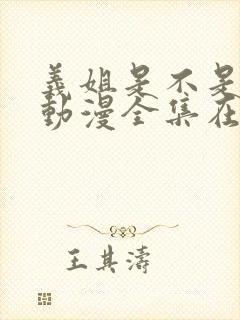 義姐是不是
動漫全集在
王其濤